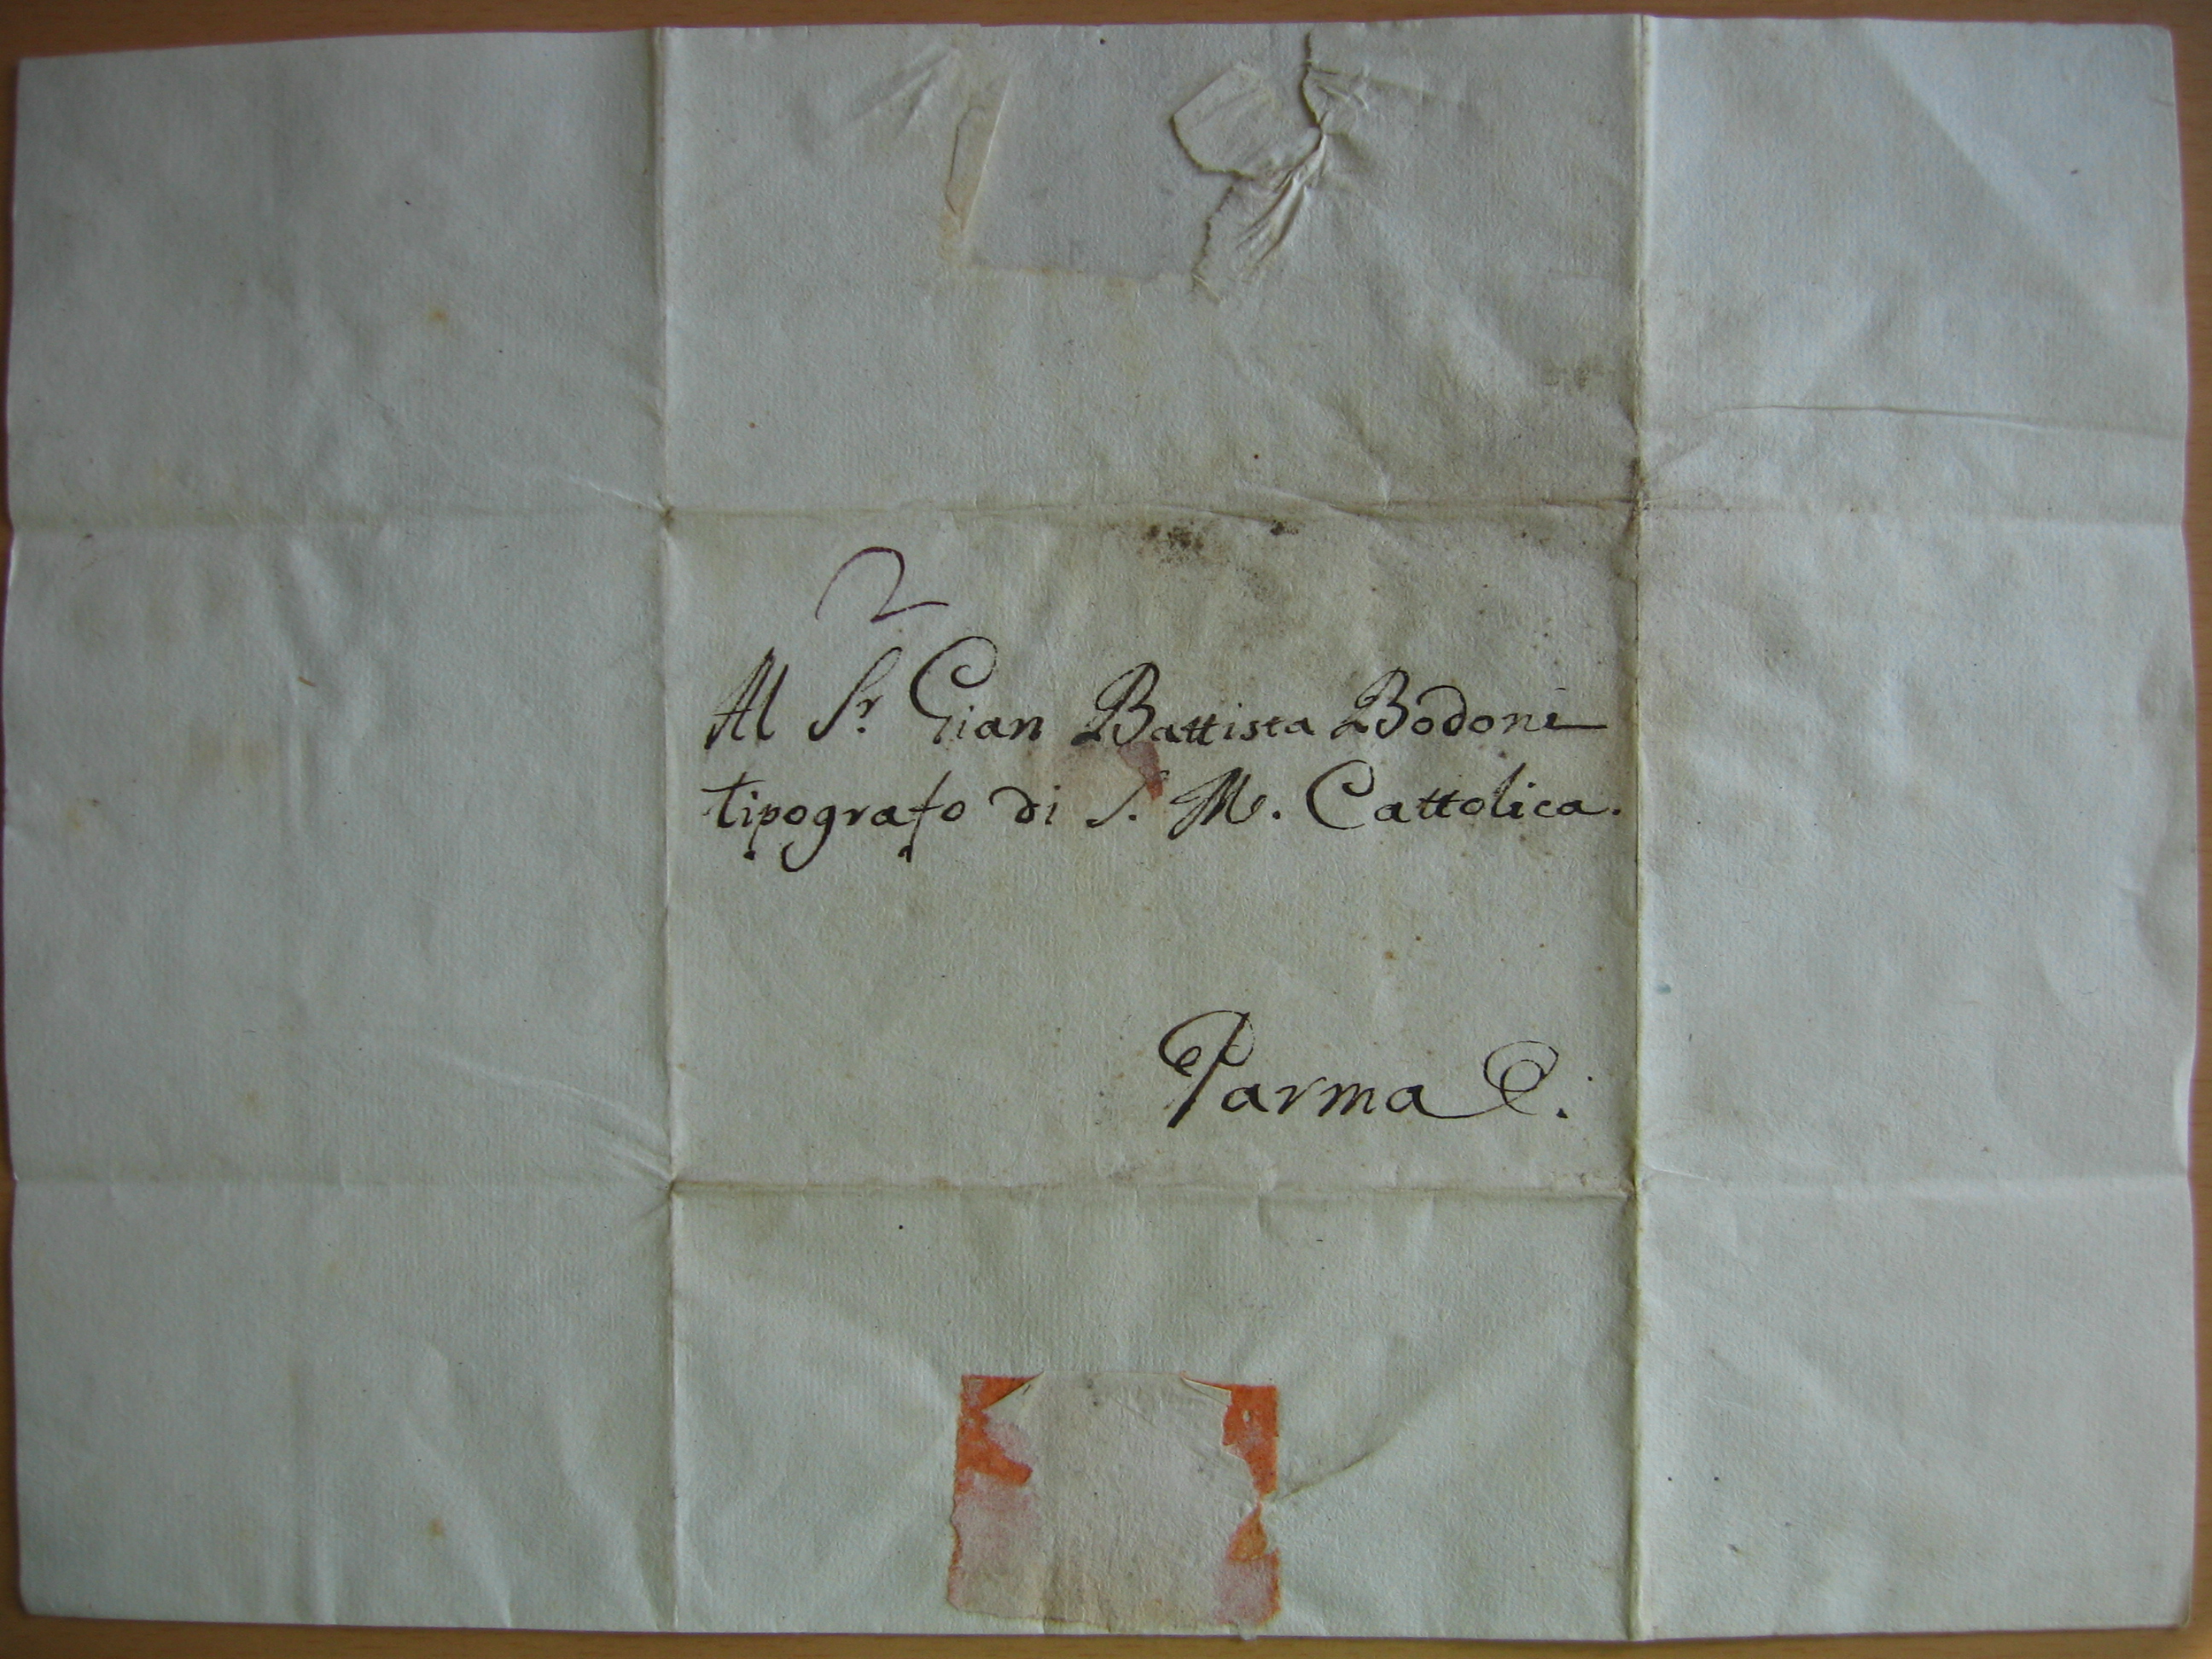 2
Al Sr. Gian Battista Bodoni
tipografo di S. M. Cattolica.
Parma